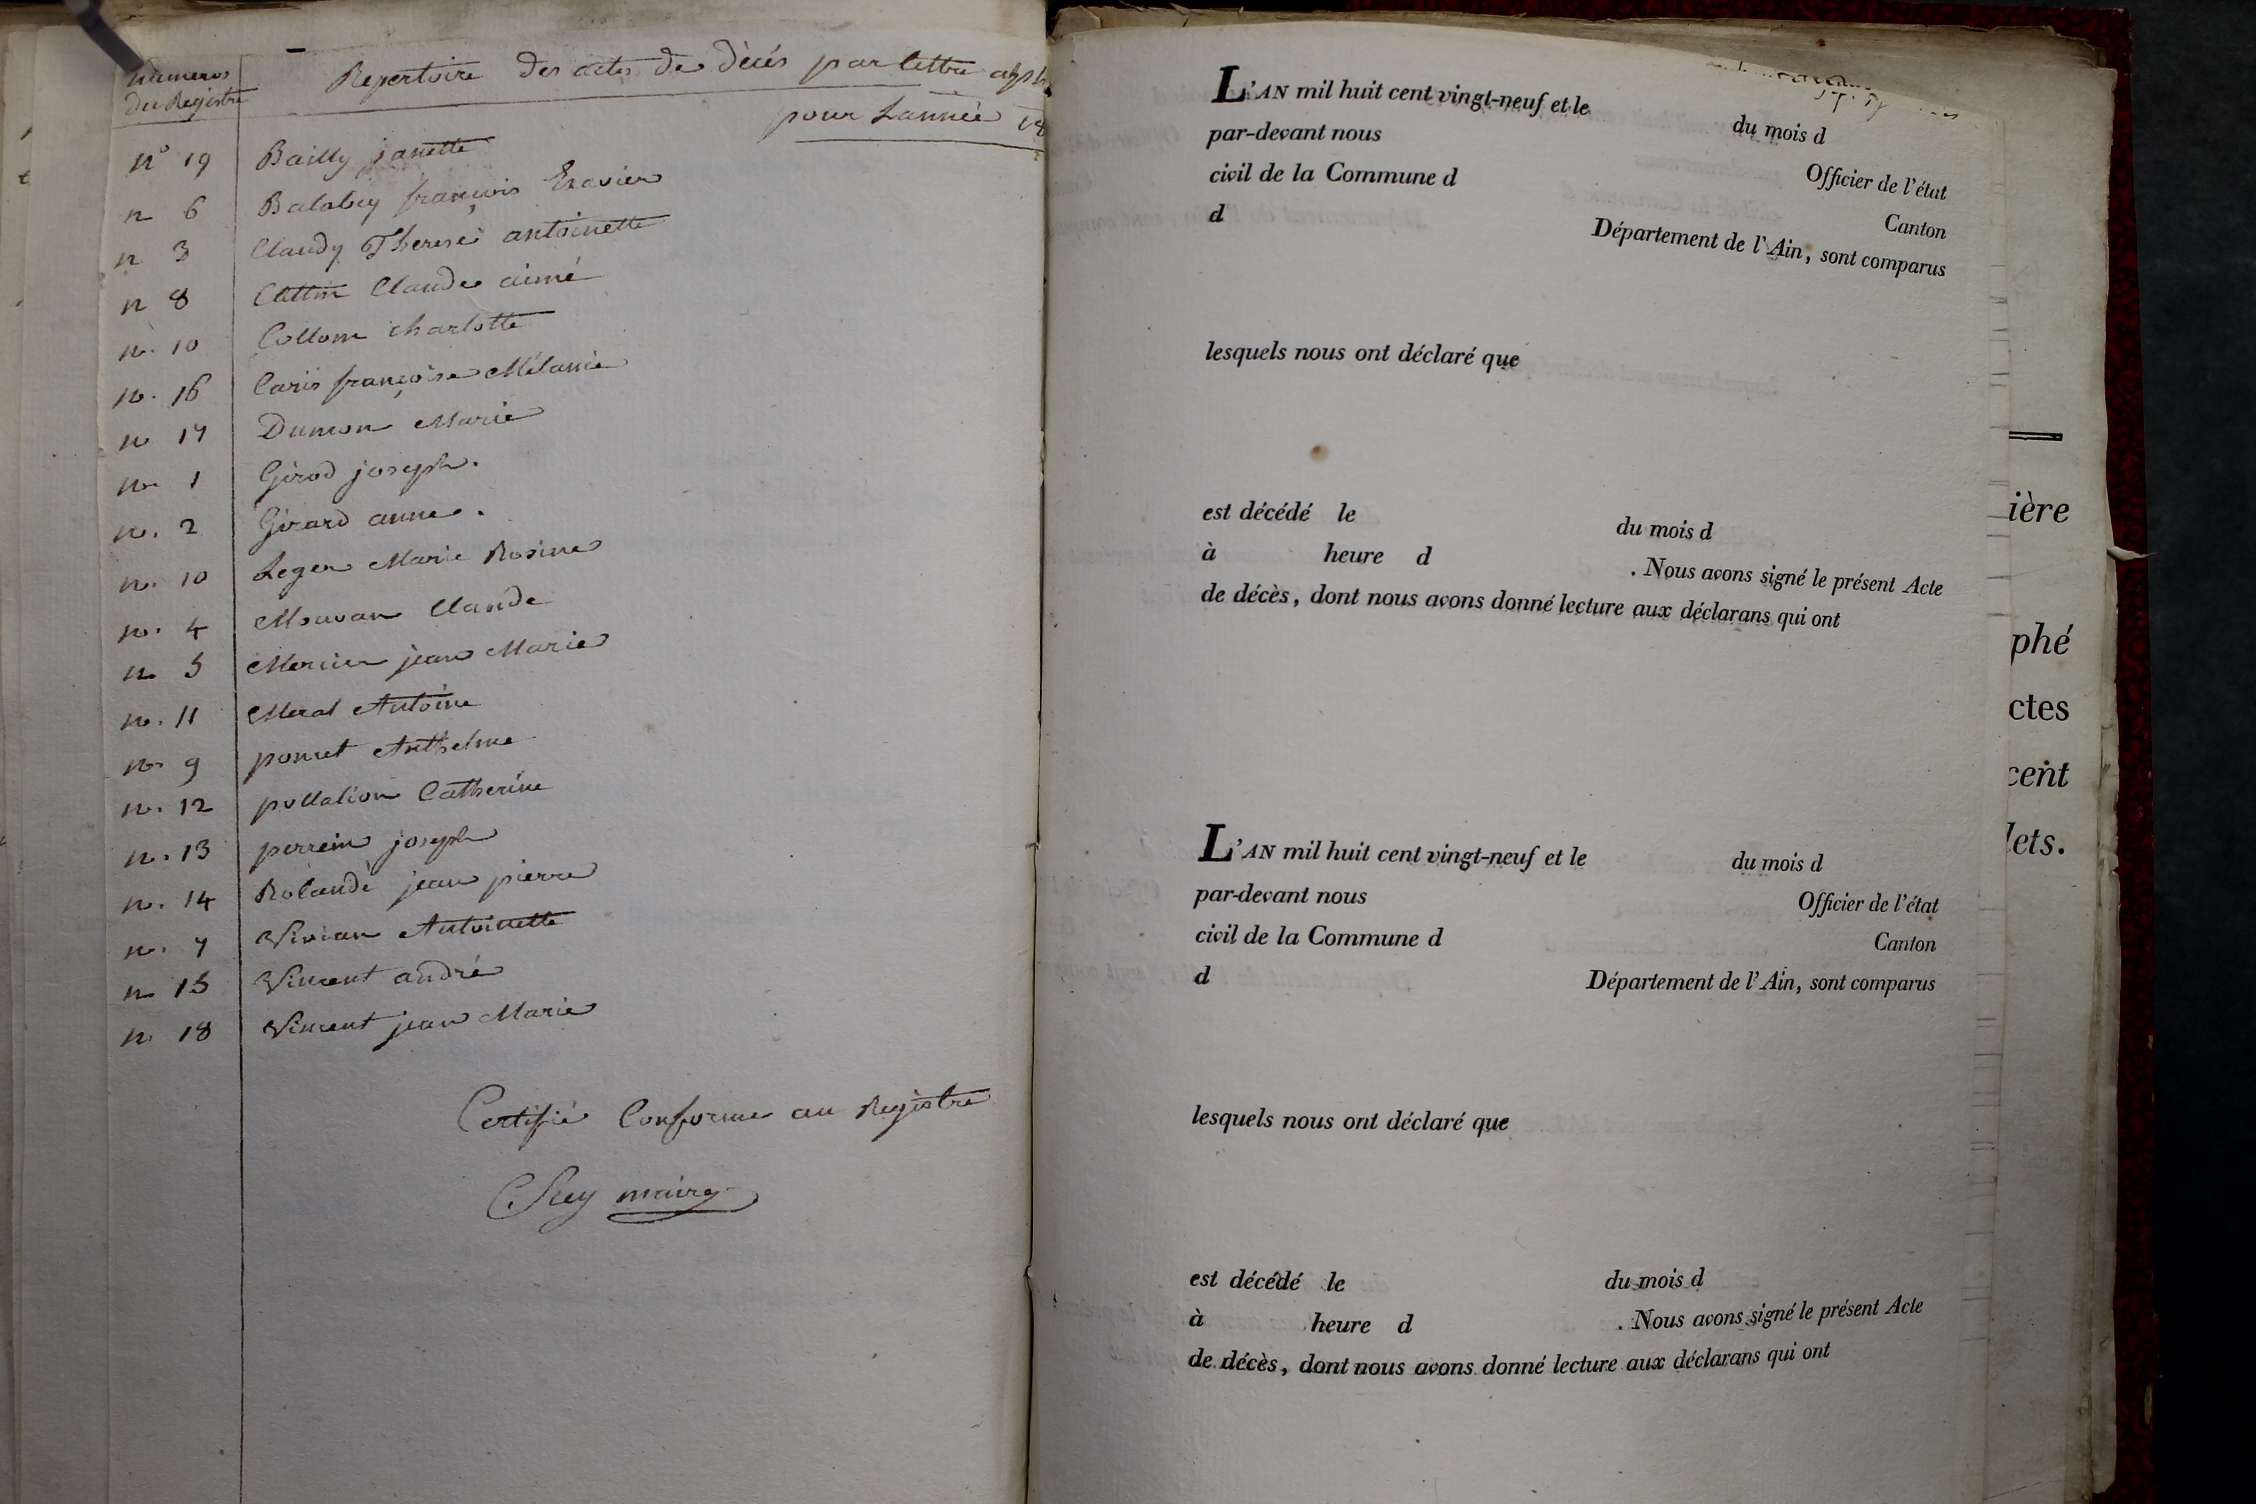 numeros
du Registre
Repertoire des actes de décés par lettre alph
pour Lannée 18
n° 19 Bailly janette
n 6 Balabey françois Exavier
n 3 Claudy Therese antoinette
n 8 Cattin Claude aimé
n. 10 Collom charlotte
n. 16 Caris françoise Mélanie
n 17 Dumon Marie
n. 1 Girod joseph.
n. 2 Girard anne.
n. 10 Leger Marie Rosine
n. 4 Mouvan Claude
n 5 Mercier jean Marie
n. 11 Meral Antoine
n. 9 poncet Anthelme
n. 12 pollalion Catherine
n. 13 perrein joseph
n. 14 Rolande jean pierre
n. 7 Vivian Antoinette
n 15 Vincent andré
n. 18 Vincent jean Marie
Certifié Conforme au Registre
Rey maire
L'AN mil huit cent vingt-neuf et le du mois d
par-devant nous Officier de l'état
civil de la Commune d Canton
d Département de l'Ain, sont comparus
lesquels nous ont déclaré que
est décédé le du mois d
à heure d . Nous avons signé le présent Acte
de décès, dont nous avons donné lecture aux déclarans qui ont
L'AN mil huit cent vingt-neuf et le du mois d
par-devant nous Officier de l'état
civil de la Commune d Canton
d Département de l'Ain, sont comparus
lesquels nous ont déclaré que
est décédé le du mois d
à heure d . Nous avons signé le présent Acte
de décès, dont nous avons donné lecture aux déclarans qui ont
ière
phé
ctes
cent
lets.